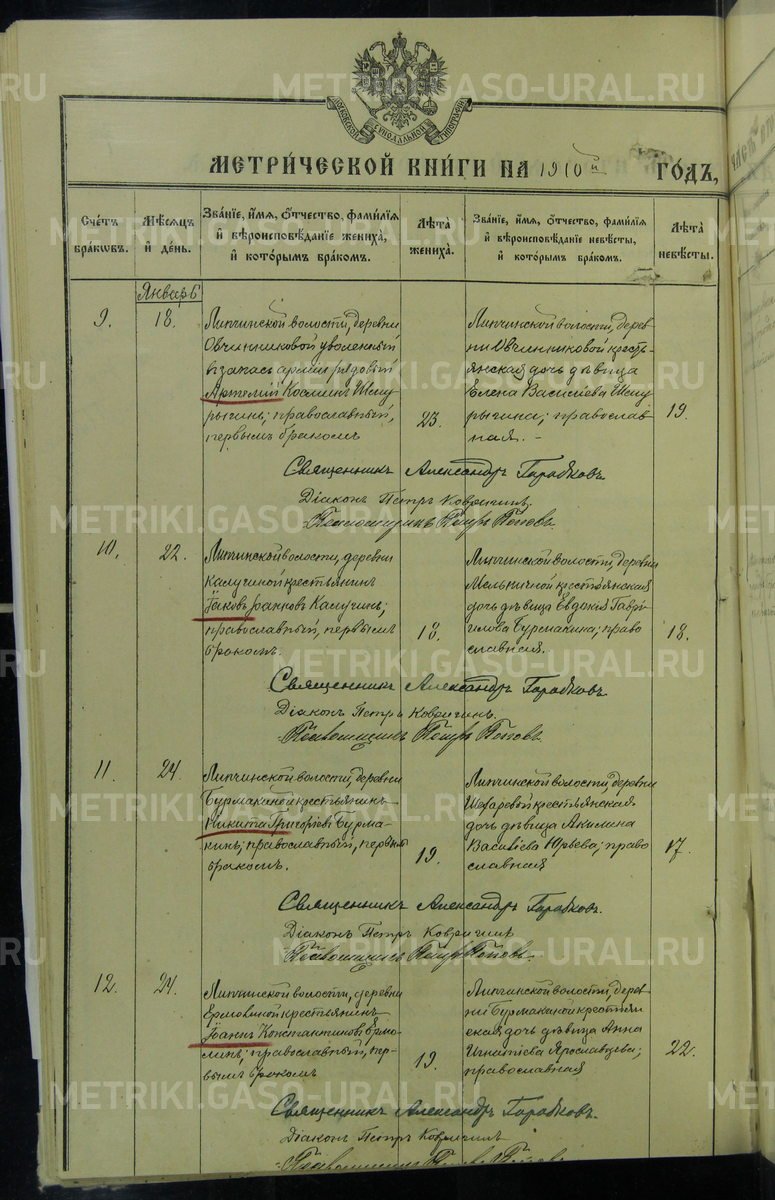 МОСКОВСКОЙ СѴНОДАЛЬНОЙ ТИПОГРАФІИ
МЕТРИ́ЧЕСКОЙ КНИ́ГИ НА 1910й ГО́ДЪ,
Сче́тъ бра́кѡвъ.
Мѣ́сѧцъ и҆ де́нь.
Зва́нїе, и҆́мѧ, ѻ҆́тчество, фами́лїѧ и҆ вѣроисповѣ́данїе жениха̀, и҆ кото́рымъ бра́комъ.
Лѣ̑та жениха̀.
Зва́нїе, и҆́мѧ, ѻ҆́тчество, фами́лїѧ и҆ вѣроисповѣ́данїе невѣ́сты, и҆ кото́рымъ бра́комъ.
Лѣ̑та невѣ́сты.
Январь
9.
18.
Липчинской волости, деревни
Овчинниковой уволенный
въ запасъ арміи рядовый
Артемій Косминъ
православный,
первымъ бракомъ
23.
Липчинской волости, дерев-
ни Овчинниковой кресть-
янская дочь дѣвица
Елена Васильева
православ-
ная.
19.
Священникъ Александръ
Діаконъ Петръ Ковригинъ.
Псаломщикъ Петръ Поповъ.
10.
22.
Липчинской волости, деревни
Калугиной крестьянинъ
Іаковъ Іоанновъ Калугинъ;
православный, первымъ
бракомъ.
18.
Липчинской волости, деревни
Мельничной крестьянская
дочь дѣвица Евдокія Гаврі-
илова Бурмакина; право
славная.
18.
Священникъ Александръ
Діаконъ Петръ Ковригинъ.
Псаломщикъ Петръ Поповъ.
11.
24.
Липчинской волости, деревни
Бурмакиной крестьянинъ
Никита Григоріевъ Бурма-
кинъ; православный, первымъ
бракомъ.
19.
Липчинской волости, деревни
крестьянская
дочь дѣвица Акилина
Васильева Юрьева; право
славная
17.
Священникъ Александръ
Діаконъ Петръ Ковригинъ
Псаломщикъ Петръ Поповъ.
12.
24.
Липчинской волости, деревни
Ермолиной крестьянинъ
Іоаннъ Константиновъ Ермо-
линъ; православный, пер-
вымъ бракомъ
19.
Липчинской волости, дерев-
ни Бурмакиной крестьян
ская дочь дѣвица Анна
Игнатіева Ярославцева;
православная
22.
Священникъ Александръ
Діаконъ Петръ Ковригинъ
Псаломщикъ Петръ Поповъ
METRIKI.GASO-URAL.RU